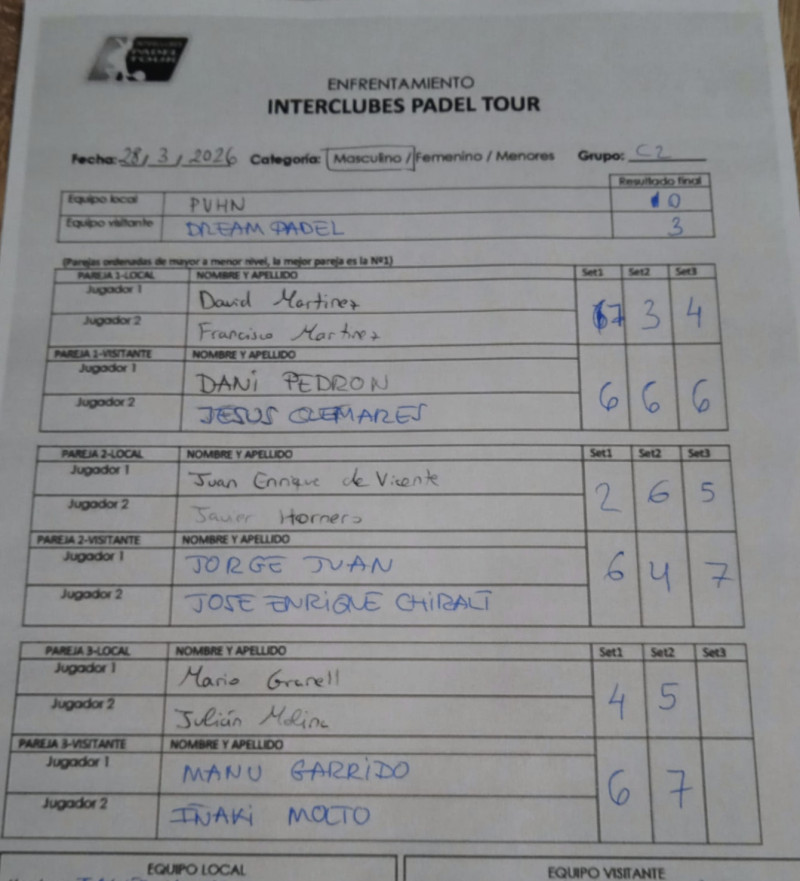 INTERCLUBES
PADEL
TOUR
ENFRENTAMIENTO
INTERCLUBES PADEL TOUR
Fecha: 28/3/2026 Categoría: Masculino / Femenino / Menores Grupo: C2
Resultado final
Equipo local PVHN 0
Equipo visitante DREAM PADEL 3
(Parejas ordenadas de mayor a menor nivel, la mejor pareja es la Nº1)
PAREJA 1-LOCAL NOMBRE Y APELLIDO Set1 Set2 Set3
Jugador 1 David Martinez
7 3 4
Jugador 2 Francisco Martinez
PAREJA 1-VISITANTE NOMBRE Y APELLIDO
Jugador 1 DANI PEDRON
6 6 6
Jugador 2 JESUS
PAREJA 2-LOCAL NOMBRE Y APELLIDO Set1 Set2 Set3
Jugador 1 Juan Enrique de Vicente
2 6 5
Jugador 2 Javier Hornero
PAREJA 2-VISITANTE NOMBRE Y APELLIDO
Jugador 1 JORGE JUAN
6 4 7
Jugador 2 JOSE ENRIQUE CHIRALT
PAREJA 3-LOCAL NOMBRE Y APELLIDO Set1 Set2 Set3
Jugador 1 Mario Granell
4 5
Jugador 2 Julián Molina
PAREJA 3-VISITANTE NOMBRE Y APELLIDO
Jugador 1 MANU GARRIDO
6 7
Jugador 2 IÑAKI MOLTO
EQUIPO LOCAL EQUIPO VISITANTE